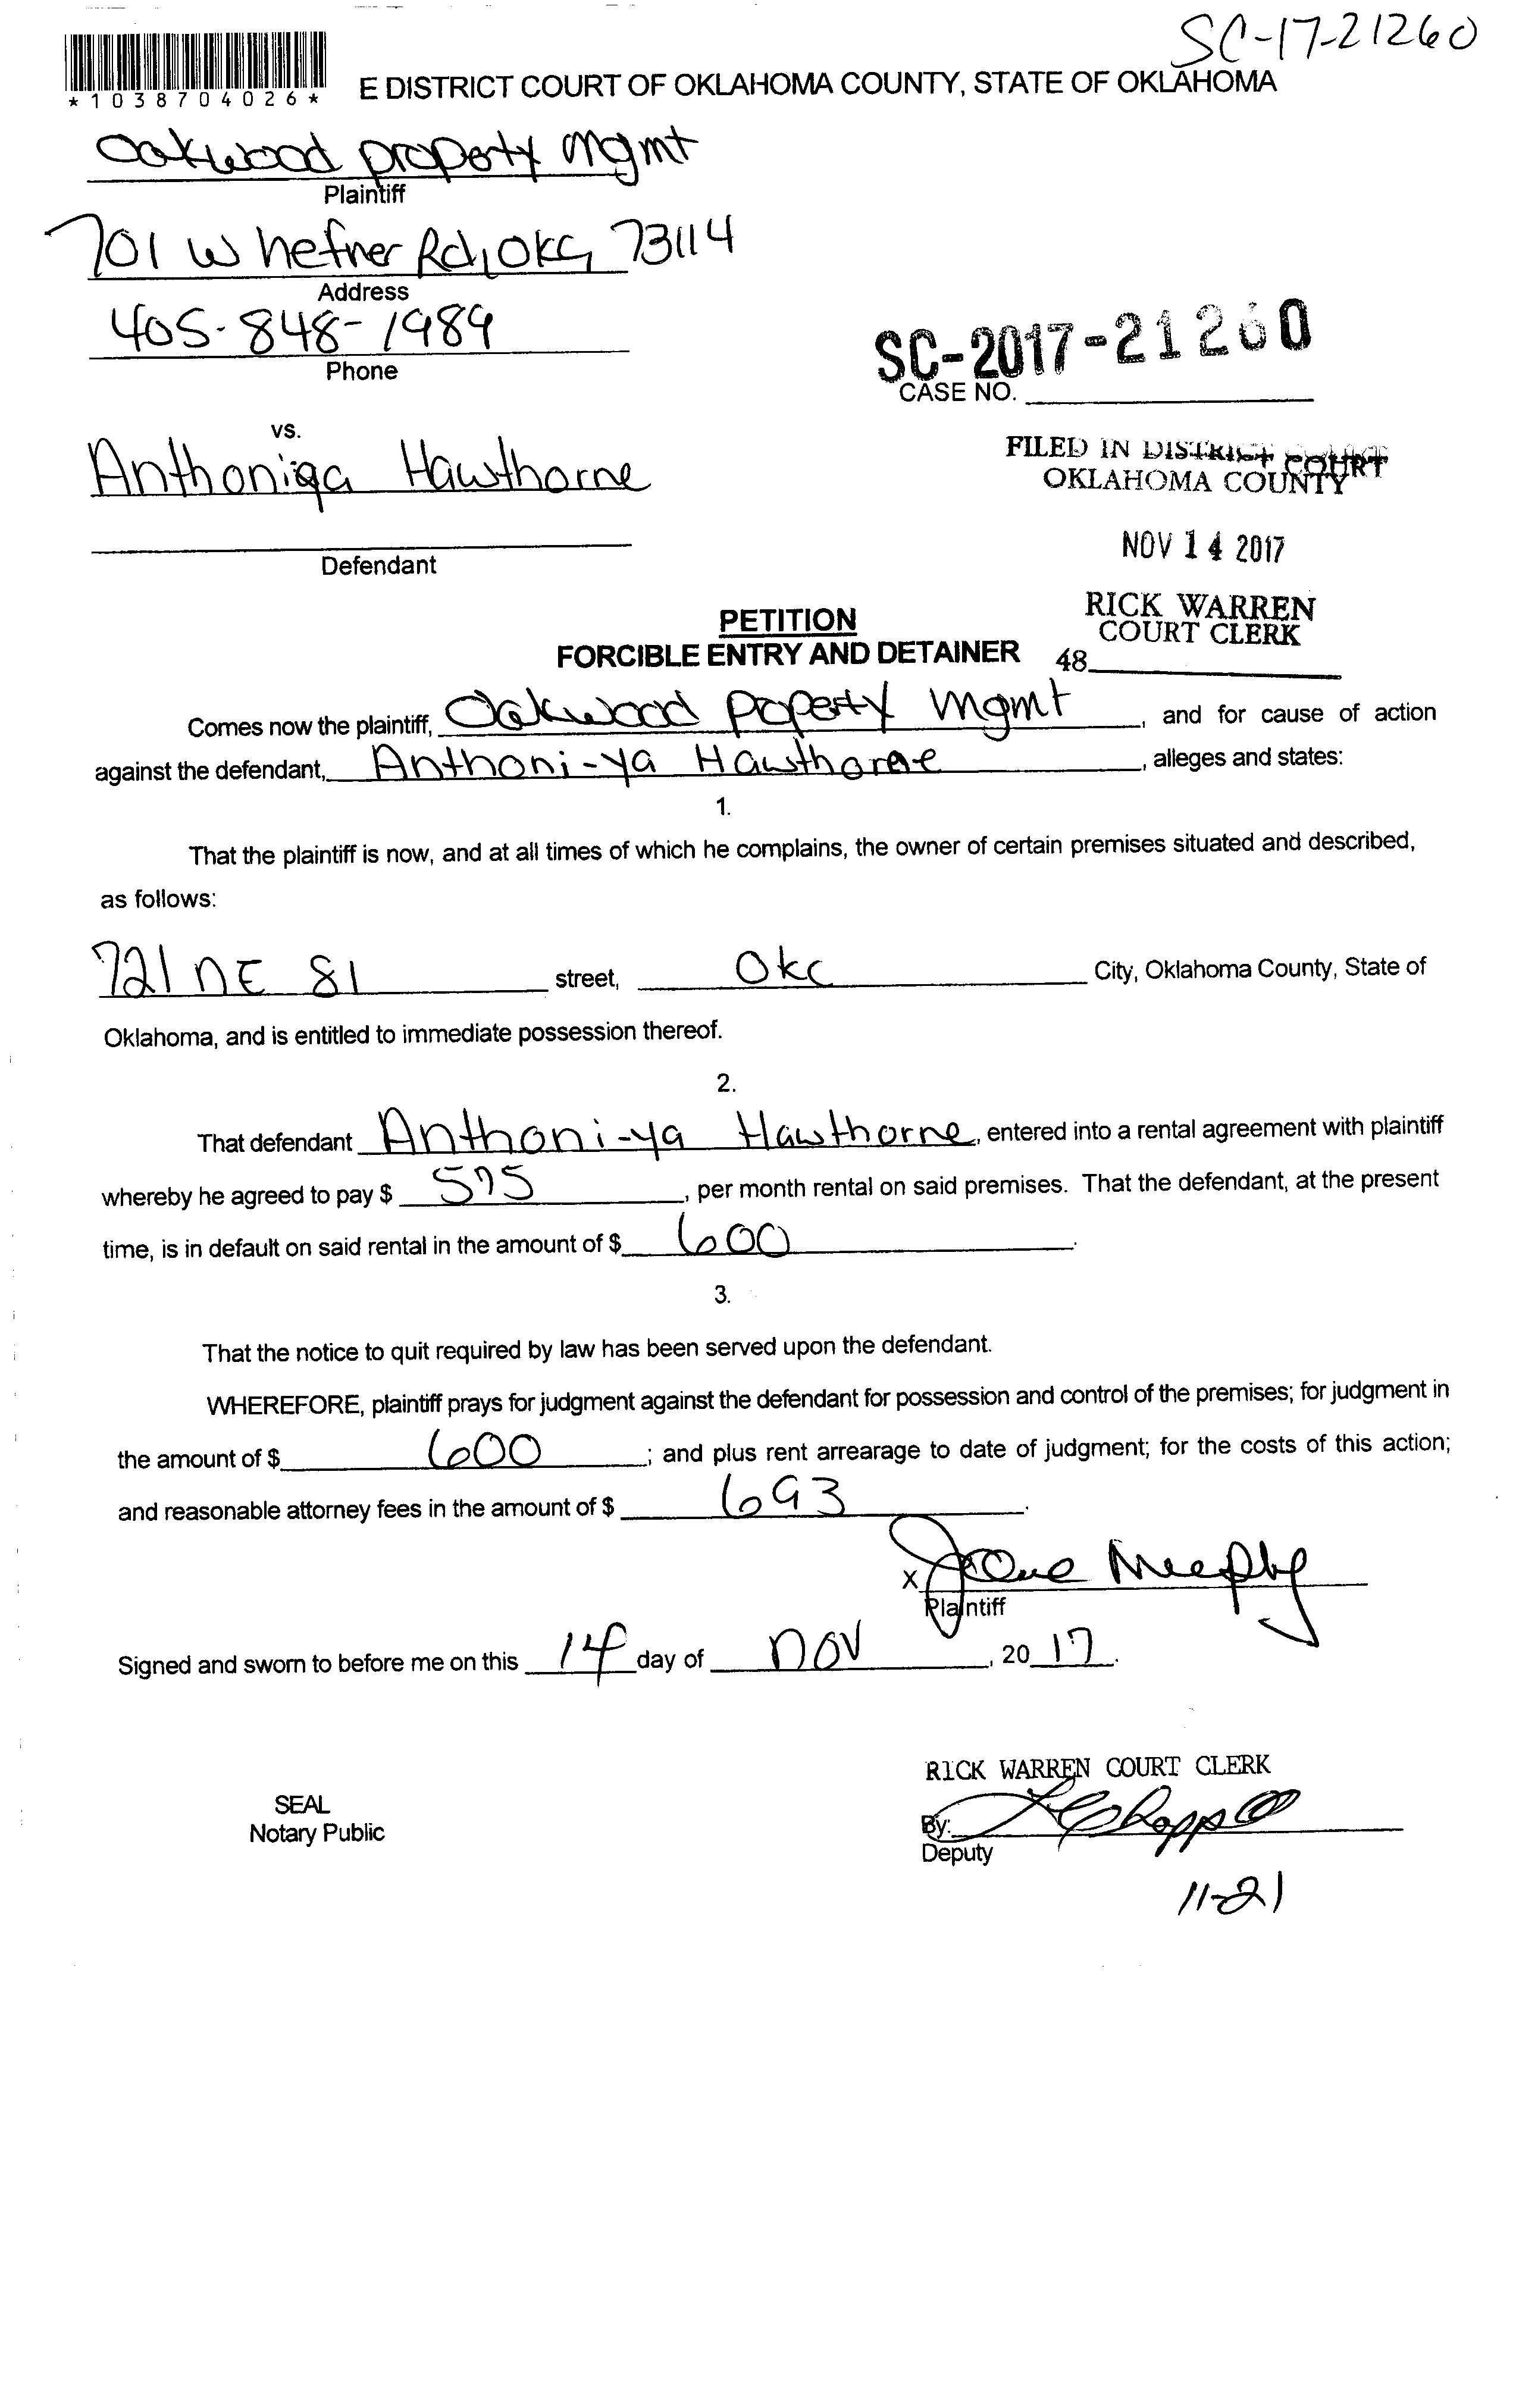 SC-17-21260
*1038704026*
E DISTRICT COURT OF OKLAHOMA COUNTY, STATE OF OKLAHOMA
Oakwood property mgmt
Plaintiff
701 W Hefner Rd, OKC, 73114
Address
405-848-1989
Phone
SC-2017-21260
CASE NO.
vs.
Anthoniqa Hawthorne
Defendant
FILED IN DISTRICT COURT
OKLAHOMA COUNTY
NOV 14 2017
RICK WARREN
COURT CLERK
48
PETITION
FORCIBLE ENTRY AND DETAINER
Comes now the plaintiff, Oakwood poperty mgmt, and for cause of action
against the defendant, Anthoni-ya Hawthorne, alleges and states:
1.
That the plaintiff is now, and at all times of which he complains, the owner of certain premises situated and described,
as follows:
721 NE 81 street, OKC City, Oklahoma County, State of
Oklahoma, and is entitled to immediate possession thereof.
2.
That defendant Anthoni-ya Hawthorne, entered into a rental agreement with plaintiff
whereby he agreed to pay $ 575, per month rental on said premises. That the defendant, at the present
time, is in default on said rental in the amount of $ 600.
3.
That the notice to quit required by law has been served upon the defendant.
WHEREFORE, plaintiff prays for judgment against the defendant for possession and control of the premises; for judgment in
the amount of $ 600; and plus rent arrearage to date of judgment; for the costs of this action;
and reasonable attorney fees in the amount of $ 693.
X
Plaintiff
Signed and sworn to before me on this 14 day of NOV, 20 17.
RICK WARREN COURT CLERK
SEAL
Notary Public
By:
Deputy
11-21